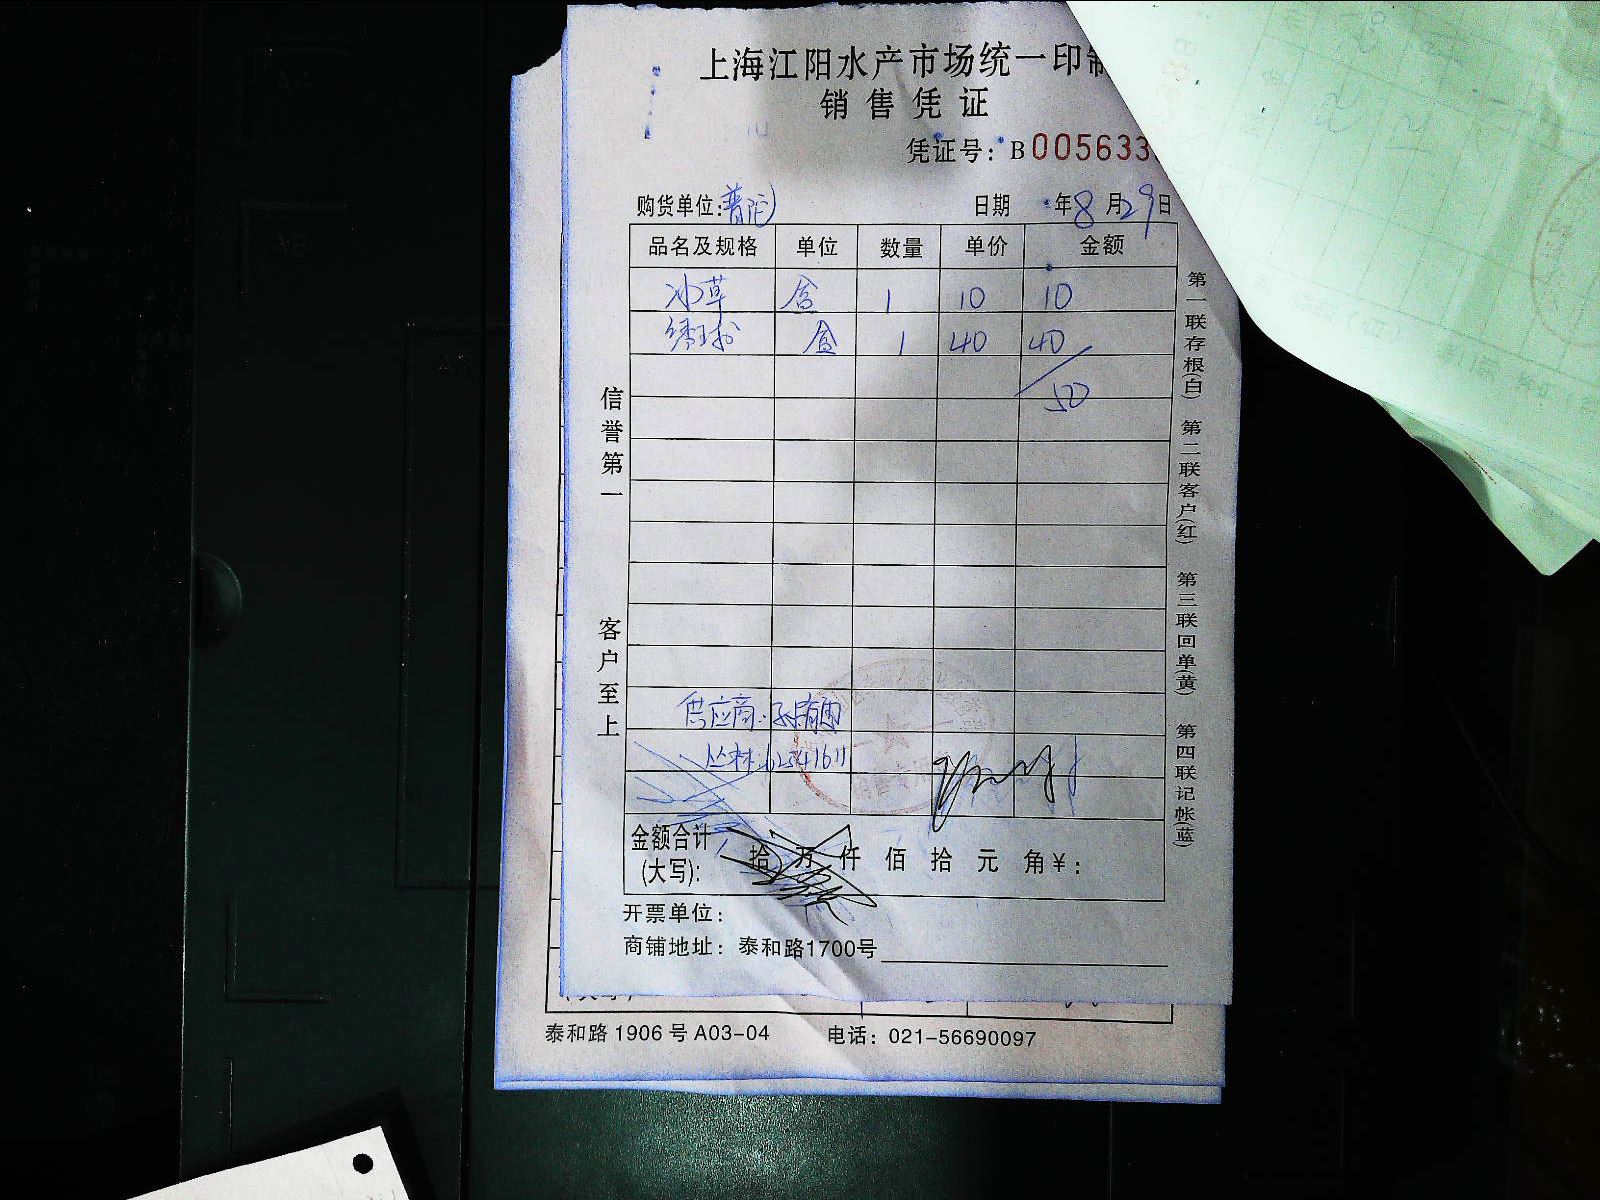 上海江阳水产市场统一印制
销售凭证
凭证号：B005633
购货单位：普陀 日期 年8月29日
品名及规格 单位 数量 单价 金额
冰草 盒 1 10 10
绣球 盒 1 40 40
50
信誉第一 客户至上
第一联存根(白) 第二联客户(红) 第三联回单(黄) 第四联记帐(蓝)
供应商：
丛林 62541611
金额合计(大写)： 拾 万 仟 佰 拾 元 角￥：
开票单位：
商铺地址：泰和路1700号
泰和路 1906 号 A03-04 电话：021-56690097